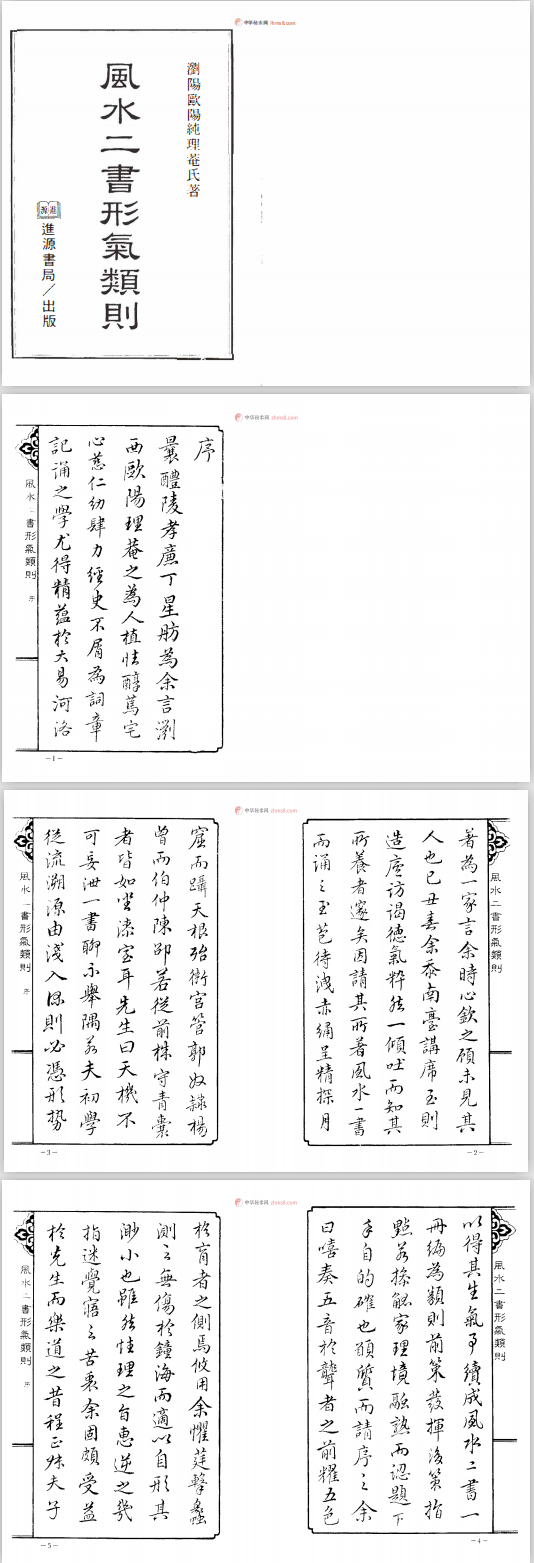 中华秘本网 zhmsll.com
瀏陽歐陽純理菴氏著
風水二書形氣類則
進源
進源書局／出版
中华秘本网 zhmsll.com
序
曩醴陵孝廉丁星舫為余言瀏
西歐陽理菴之為人植性醇篤宅
心慈仁幼肆力經史不屑為詞章
記誦之學尤得精蘊於大易河洛
風水二書形氣類則
序
-1-
中华秘本网 zhmsll.com
風水二書形氣類則
著為一家言余時心欽之顧未見其
人也己丑春余忝南臺講席玉則
造廬访谒德氣粹然一傾吐而知其
所養者邃矣因請其所著風水一書
而诵之玉苞待洩赤繩呈精探月
-2-
窟而躡天根殆衙官管郭奴隸楊
曾而伯仲陳邵若從前株守青囊
者皆如坐漆室耳先生曰天機不
可妄泄一書聊示舉隅若夫初學
從流溯源由淺入深則必憑形势
風水二書形氣類則
序
-3-
中华秘本网 zhmsll.com
風水二書形氣類則
以得其生氣爭續成風水二書一
冊編為類則前策發揮後策指
點若操觚家理境融熟而認題下
手自的確也願質而請序之余
曰嘻奏五音於聾者之前耀五色
-4-
於盲者之側焉攸用余懼莛擊蠡
測之無傷於鐘海而適以自形其
渺小也雖然性理之旨惠逆之幾
指迷覺寤之苦衷余固頗受益
於先生而樂道之昔程正叔夫子
風水二書形氣類則
序
-5-